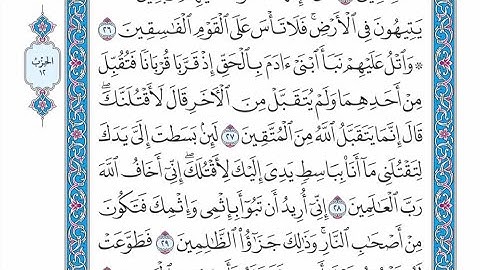 يَتِيهُونَ فِي ٱلْأَرْضِ ۚ فَلَا تَأْسَ عَلَى ٱلْقَوْمِ ٱلْفَـٰسِقِينَ ٢٦
۞ وَٱتْلُ عَلَيْهِمْ نَبَأَ ٱبْنَيْ ءَادَمَ بِٱلْحَقِّ إِذْ قَرَّبَا قُرْبَانًا فَتُقُبِّلَ
مِنْ أَحَدِهِمَا وَلَمْ يُتَقَبَّلْ مِنَ ٱلْـَٔاخَرِ قَالَ لَأَقْتُلَنَّكَ ۖ
قَالَ إِنَّمَا يَتَقَبَّلُ ٱللَّهُ مِنَ ٱلْمُتَّقِينَ ٢٧ لَئِنۢ بَسَطتَ إِلَيَّ يَدَكَ
لِتَقْتُلَنِي مَآ أَنَا۠ بِبَاسِطٍ يَدِيَ إِلَيْكَ لِأَقْتُلَكَ ۖ إِنِّيٓ أَخَافُ ٱللَّهَ
رَبَّ ٱلْعَـٰلَمِينَ ٢٨ إِنِّيٓ أُرِيدُ أَن تَبُوٓأَ بِإِثْمِي وَإِثْمِكَ فَتَكُونَ
مِنْ أَصْحَـٰبِ ٱلنَّارِ ۚ وَذَٰلِكَ جَزَـٰٓؤُا۟ ٱلظَّـٰلِمِينَ ٢٩ فَطَوَّعَتْ
الحزب
١٢